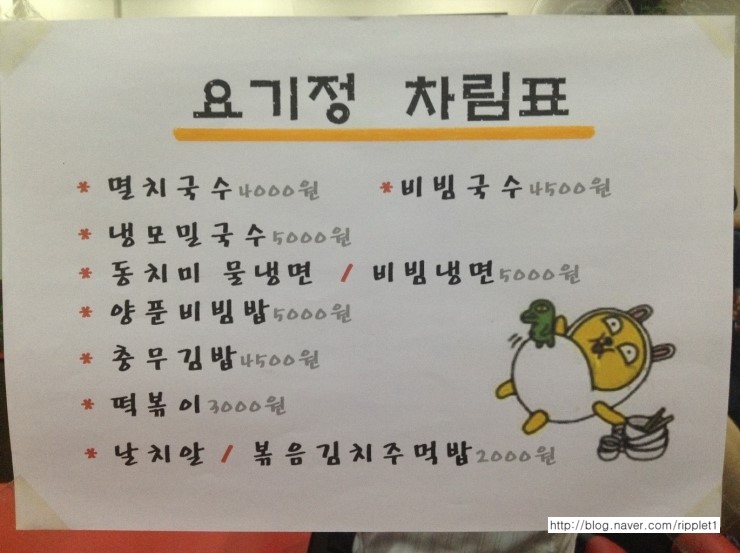 요기정 차림표
* 멸치국수 4000원 * 비빔국수 4500원
* 냉모밀국수 5000원
* 동치미 물냉면 / 비빔냉면 5000원
* 양푼비빔밥 5000원
* 충무김밥 4500원
* 떡볶이 3000원
* 날치알 / 볶음김치주먹밥 2000원
http://blog.naver.com/ripplet1